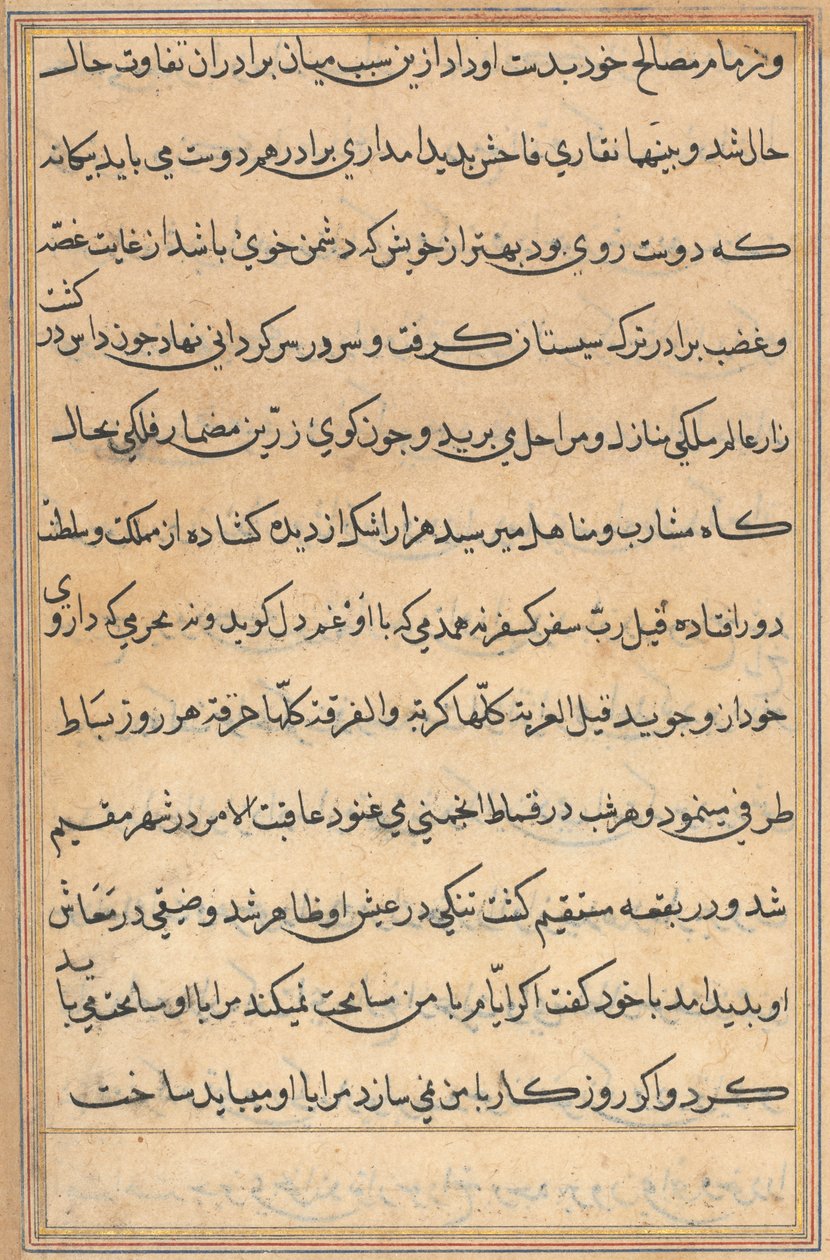 و زمام مصالح خود بدست او داد ازین سبب میان برادران تفاوت حال
حال شد و بینهما نقاری فاحش بدید امد اری برادر هم دوست می باید بیکانه
که دوست روی بود بهتر از خویش که دشمن خوئ باشد از غایت غصّه
و غضب برادر ترک سیستان کرفت و سر در سرکردانی نهاد جون داس در کشت
زار عالم ملکی منازل و مراحل می برید و جون کوئ زرّین مضمار فلکی بحال
کاه مشارب و مناهل میرسید هزار اشک از دیده کشاده از مملکت و سلطنت
دور افتاده قیل ربّ سفر کسفر نه همدمی که با او غم دل کوید و نه محرمی که داروی
خود ازو جوید قیل الغربة کلّها کربة والفرقة کلّها حرقة هر روز بساط
طرفی میںمود و هر شب در قماط انجمنی می غنود عاقبت الامر در شهر مقیم
شد و در بقعه مستقیم کشت تنکی در عیش او ظاهر شد و ضیقی در مَعَاش
او بدید امد با خود کفت اکر ایّام با من مسامحت نمیکند مرا با او مسامحت می باید
کرد و اکر روزکار با من نمی سازد مرا با او میباید ساخت